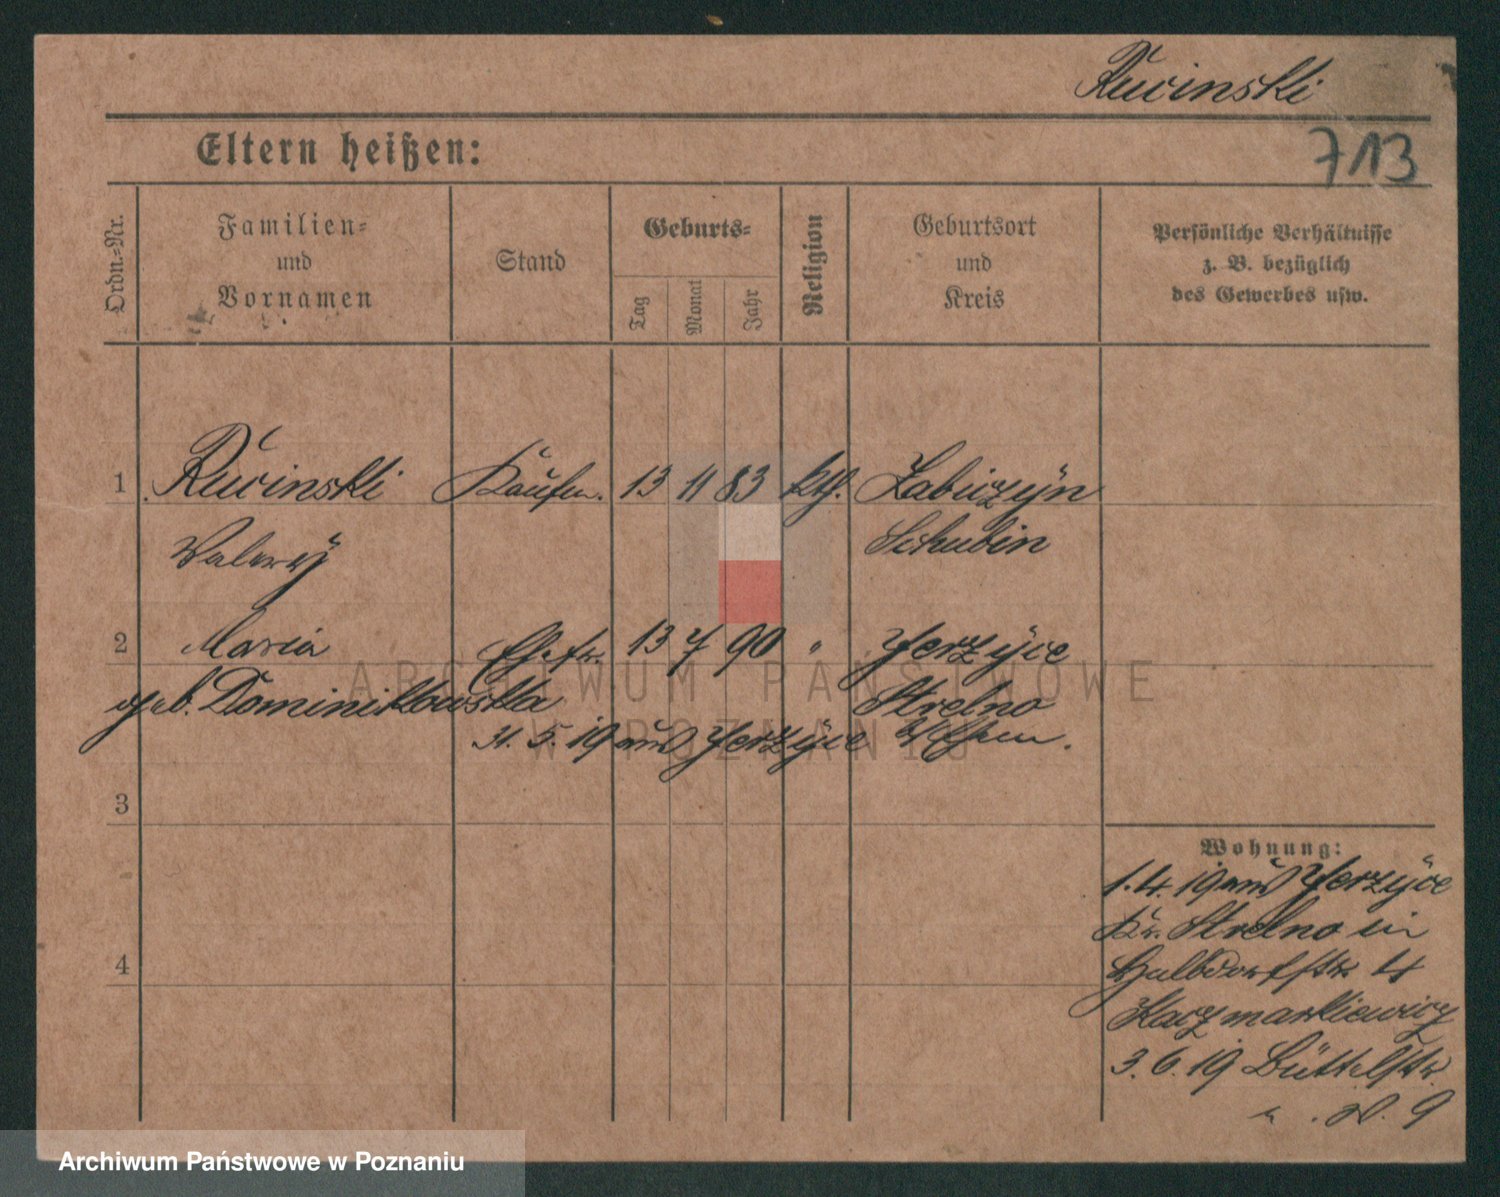 Rucinski
713
Eltern heißen:
Ordn.-Nr.
Familien-
und
Vornamen
Stand
Geburts-
Tag
Monat
Jahr
Religion
Geburtsort
und
Kreis
Persönliche Verhältnisse
z. B. bezüglich
des Gewerbes usw.
1 Rucinski Kaufm. 13 11 83 kth. Labiczyn
Valery Schubin
2 Maria Ehefr. 13 7 90 " Jerzyce
geb. Dominikowska Strelno
31. 5. 19 aus Jerzyce
3
Wohnung:
1. 4. 19 aus Jerzyce
Kr. Strelno in
Halbdorfstr 4
4
Kaczmarkiewicz
3. 6. 19 Büttelstr.
9
ARCHIWUM PAŃSTWOWE
W POZNANIU
Archiwum Państwowe w Poznaniu